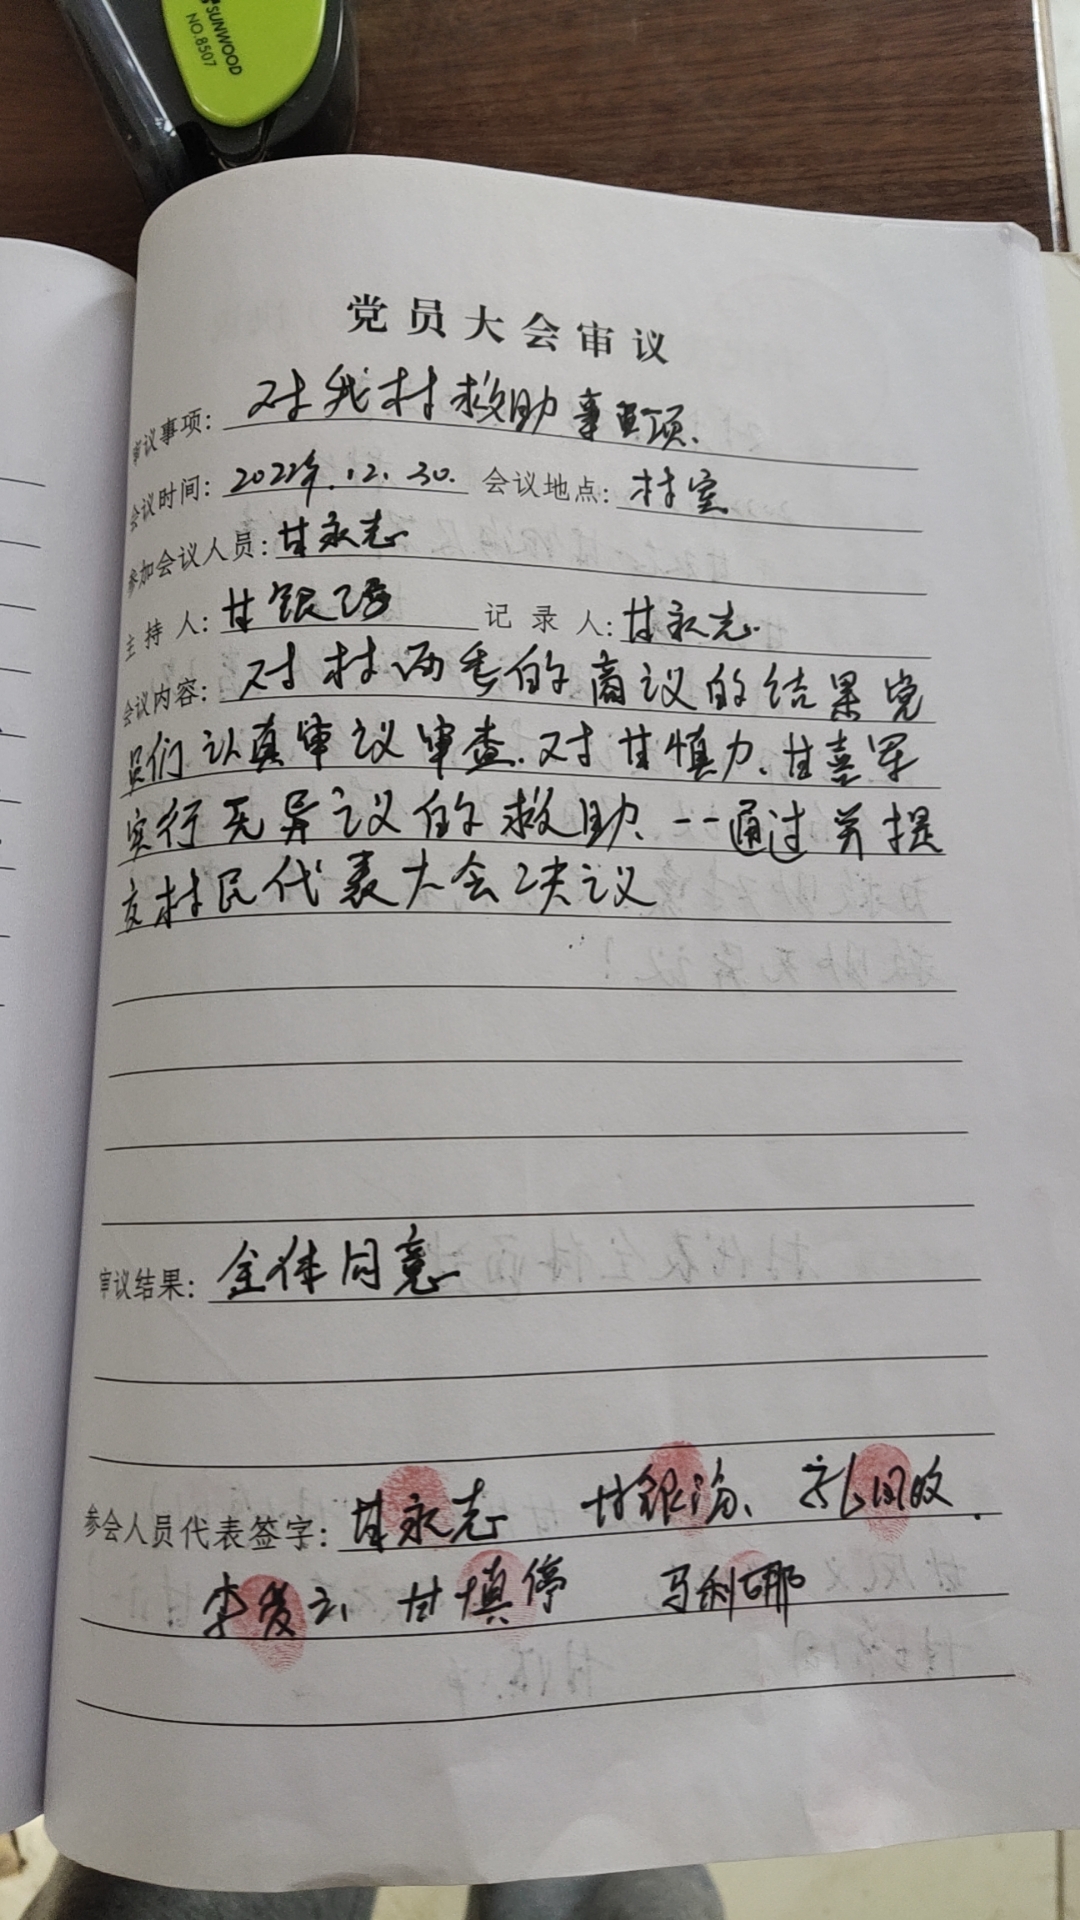 SUNWOOD
NO.8507
党员大会审议
审议事项：对我村救助事项.
会议时间：2022年.12.30. 会议地点：村室
参加会议人员：甘永志
主持人：甘银 记录人：甘永志
会议内容：对村两委的商议的结果党
员们认真审议审查.对甘慎力、甘喜军
实行无异议的救助、一一通过并提
交村民代表大会决议
审议结果：全体同意
参会人员代表签字：甘永志 甘银 凤
李爱云、甘填停 马利娜